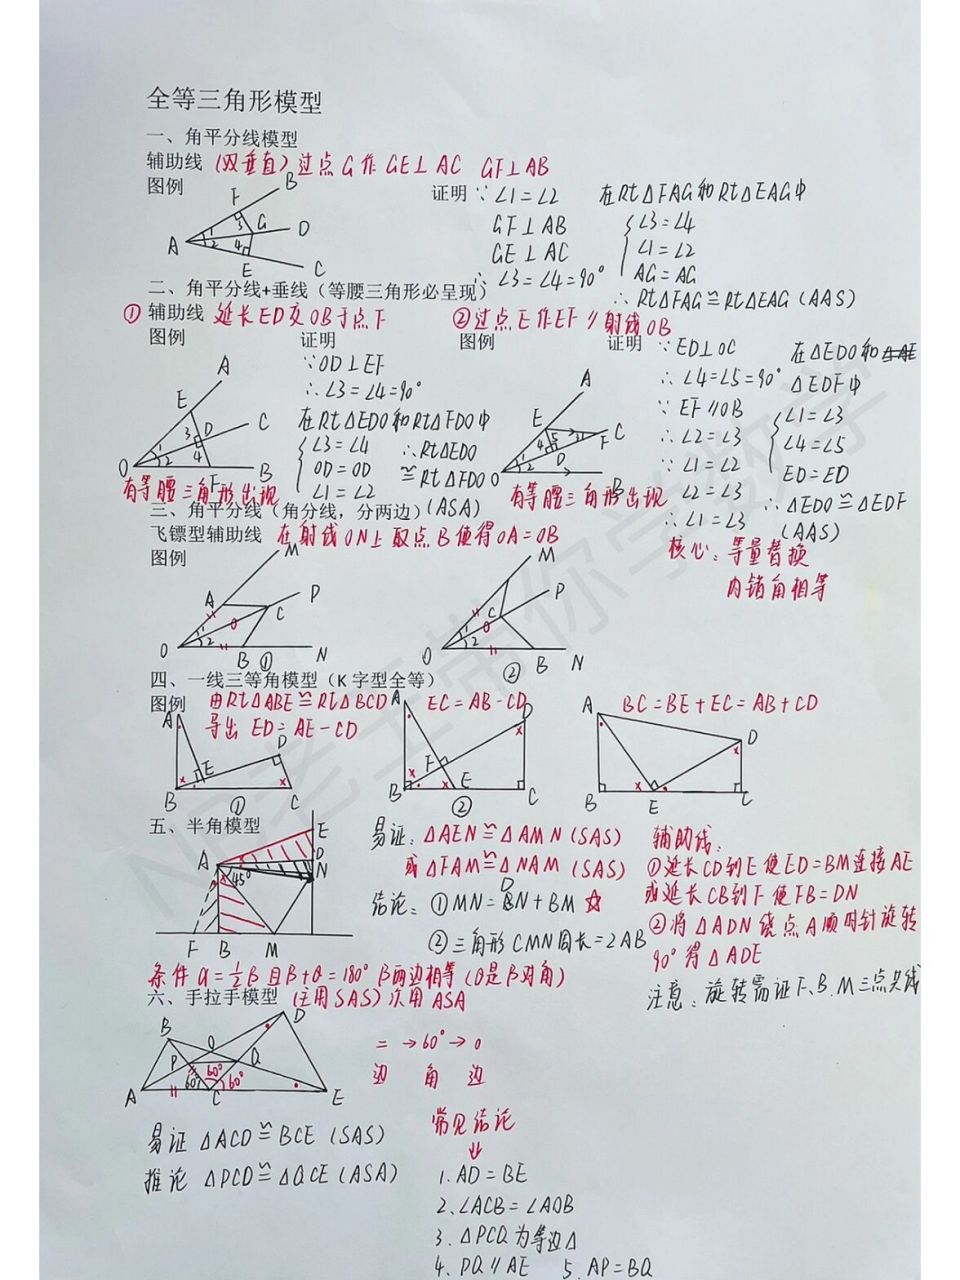 全等三角形模型
一、角平分线模型
辅助线 (双垂直) 过点G作GE⊥AC GF⊥AB
图例
A B C D E F G 1 2 3 4
证明 ∵∠1=∠2
GF⊥AB
GE⊥AC
∴∠3=∠4=90°
在Rt△FAG和Rt△EAG中
∠3=∠4
∠1=∠2
AG=AG
∴Rt△FAG≌Rt△EAG (AAS)
二、角平分线+垂线（等腰三角形必呈现）
① 辅助线 延长ED交OB于点F
图例
A E C D O F B 1 2 3 4
有等腰三角形出现
证明
∵OD⊥EF
∴∠3=∠4=90°
在Rt△EDO和Rt△FDO中
∠3=∠4
OD=OD
∠1=∠2
∴Rt△EDO
≌Rt△FDO
(ASA)
②过点E作EF∥射线OB
图例
A E C F D O B 1 2 3 4 5
有等腰三角形出现
证明 ∵ED⊥OC
∴∠4=∠5=90°
∵EF∥OB
∴∠2=∠3
∵∠1=∠2
∠2=∠3
∴∠1=∠3
在△EDO和
△EDF中
∠1=∠3
∠4=∠5
ED=ED
∴△EDO≌△EDF
(AAS)
核心：等量替换
内错角相等
三、角平分线（角分线，分两边）
飞镖型辅助线 在射线ON上取点B使得OA=OB
图例
M A C P O B N 1 2 ①
M C P O B N 1 2 ②
四、一线三等角模型（K字型全等）
图例 由Rt△ABE≌Rt△BCD
导出 ED=AE-CD
A E D B C ①
EC=AB-CD
A D F B E C ②
BC=BE+EC=AB+CD
A D B E C
五、半角模型
E A D N 45° F B M
易证：△AEN≌△AMN (SAS)
或△FAM≌△NAM (SAS)
结论：①MN=DN+BM ☆
②三角形CMN周长=2AB
辅助线：
①延长CD到E使ED=BM连接AE
或延长CB到F使FB=DN
②将△ADN绕点A顺时针旋转
90°得△ADE
注意：旋转需证F、B、M三点共线
条件 α=½β且β+θ=180° β两边相等 (θ是β对角)
六、手拉手模型 (主用SAS) 次用ASA
D B O P Q 60° 60° 60° A C E
= →60°→ 0
边 角 边
易证 △ACD≌BCE (SAS)
推论 △PCD≌△QCE (ASA)
常见结论
⇓
1.AD=BE
2.∠ACB=∠AOB
3.△PCQ为等边△
4.PQ∥AE 5.AP=BQ